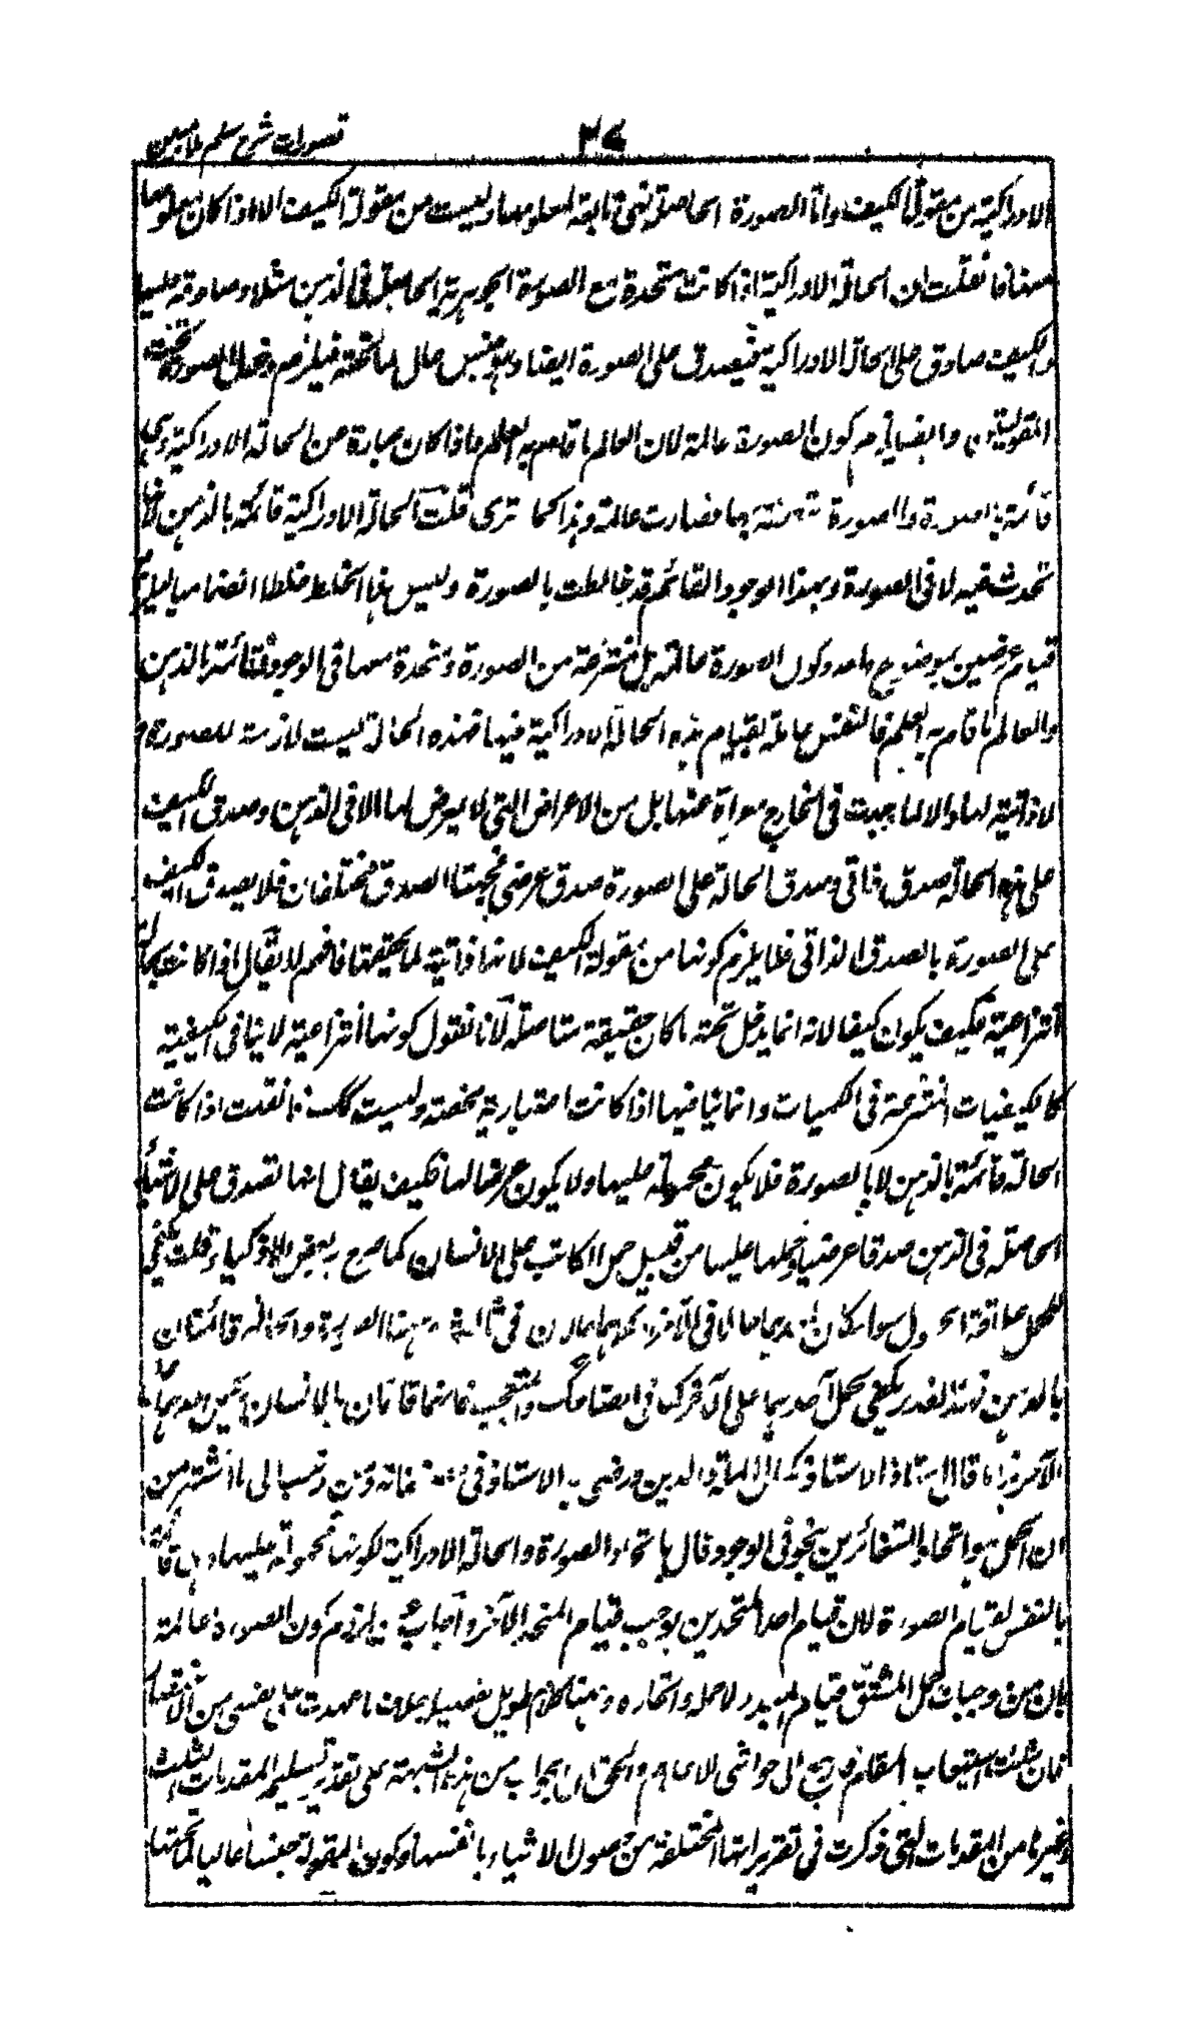 ٣٤
تصورات شرح سلم ملا مبين
الادراكية من مقولة الكيف واما الصورة الحاصلة فهى تابعة لمعلومها وليست من مقولة الكيف الا اذا كان معلومها
كيفا فان قلت ان الحالة الادراكية اذا كانت متحدة مع الصورة الجوهرية الحاصلة فى الذهن مثلا وصادقة عليها
والكيف صادق على الحالة الادراكية فيصدق على الصورة ايضا وهو جنس عال لما تحته فيلزم دخول الصورة تحت
المقولتين وايضا يلزم كون الصورة عالمة لان العالم ما قام به العلم فاذا كان عبارة عن الحالة الادراكية وهى
قائمة بالصورة والصورة متصفة بها فصارت عالمة وهذا كما ترى قلت الحالة الادراكية قائمة بالذهن لانها
تحدث فيه لا فى الصورة وبهذا الوجود القائم قد خالطت بالصورة وليس هذا الخلط خلطا انضماميا
قيام عرضين بموضوع واحد وكون الصورة عالمة بل منتزعة من الصورة ومتحدة معها فى الوجود قائمة بالذهن
والعالم ما قام به العلم فالنفس عالمة لقيام هذه الحالة الادراكية فيها فهذه الحالة ليست لازمة للصورة و
لا ذاتية لها والا لما جدت فى الخارج معراة عنها بل من الاعراض التى لا يعرض لها الا فى الذهن وصدق الكيف
على هذه الحالة صدق ذاتى وصدق الحالة على الصورة صدق عرضى فجهتا الصدق مختلفان فلا يصدق الكيف
على الصورة بالصدق الذاتى فلا يلزم كونها من مقولة الكيف لانها ذاتية لما تحتها فافهم لا يقال اذا كانت الحالة
انتزاعية فكيف يكون كيفا لانه انما يدخل تحته ما كان حقيقة متاصلة لانا نقول كونها انتزاعية لا ينافى الكيفية
كالكيفيات المنتزعة فى الكميات وانما ينافيها اذا كانت اعتبارية محضة وليست كك فان قلت اذا كانت
الحالة قائمة بالذهن لا بالصورة فلا يكون محمولة عليها ولا يكون عرضا لها فكيف يقال انها تصدق على الاشياء
الحاصلة فى الذهن صدقا عرضيا وحملها عليها من قبيل حمل الكاتب على الانسان كما صرح به بعض الاذكياء قلت يكفى
للحمل علاقة الحلول سواء كان احدهما حالا فى الآخر او كلاهما حالان فى ثالث وههنا الصورة والحالة قائمتان
بالذهن فهذا القدر يكفى لحمل احدهما على الآخر كما فى الضاحك والمتعجب فانهما قائمان بالانسان ويحمل احدهما على
الآخر هذا ما قال استاذ الاستاذ كمال الملة والدين ورضى به الاستاذ فى وذهب الى ما اشتهر من
ان الحمل هو اتحاد المتغائرين بنحو فى الوجود قال باتحاد الصورة والحالة الادراكية لكونها محمولة عليها وهى قائمة
بالنفس لقيام الصورة لان قيام احد المتحدين يوجب قيام المتحد الآخر واجاب عن لزوم كون الصورة عالمة
بان من موجبات حمل المشتق قيام المبدء لا حمله واتحاده وههنا كلام طويل
فان شئت استيعاب المقام فارجع الى حواشى الامام والحق ان الجواب من هذه الشبهة على تقدير تسليم المقدمات الثلث
وغيرها من المقدمات التى ذكرت فى تقريراتها المختلفة من حصول الاشياء بانفسها وكون المقولة جنسا عاليا لما تحتها